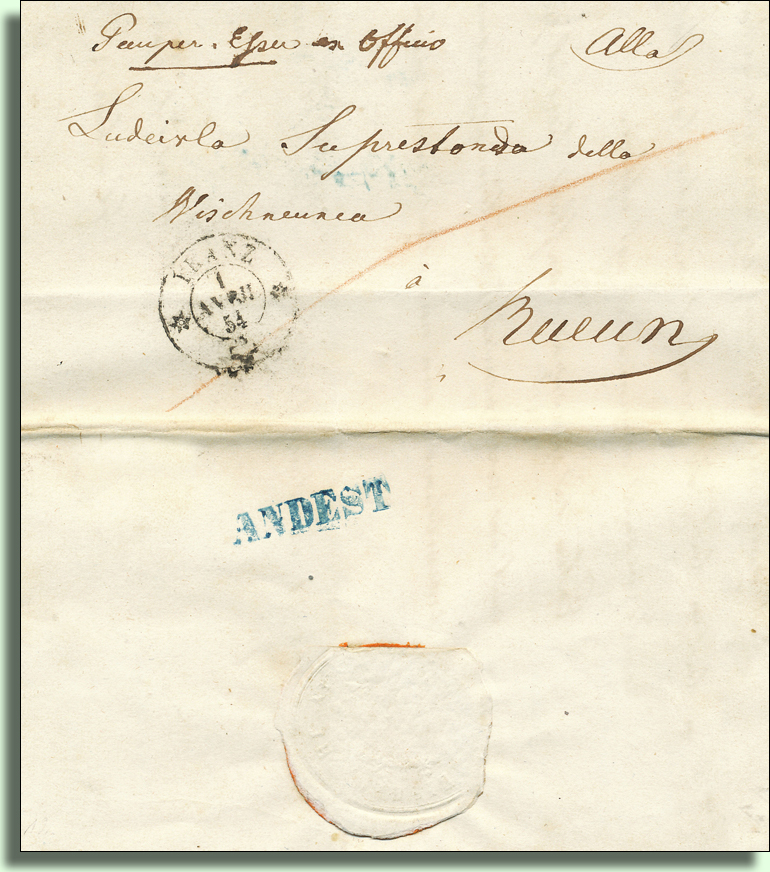 Pauper. Esser ex Officio Alla
Ludeivla Suprestonda della
Vischneunca
ILANZ
1
AVRIL
54
à
Rueun
ANDEST